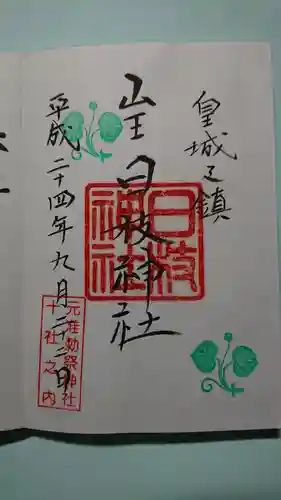 皇城之鎮
山王
日枝神社
日枝神社
平成二十四年九月二十二日
元准勅祭神社
十社之内